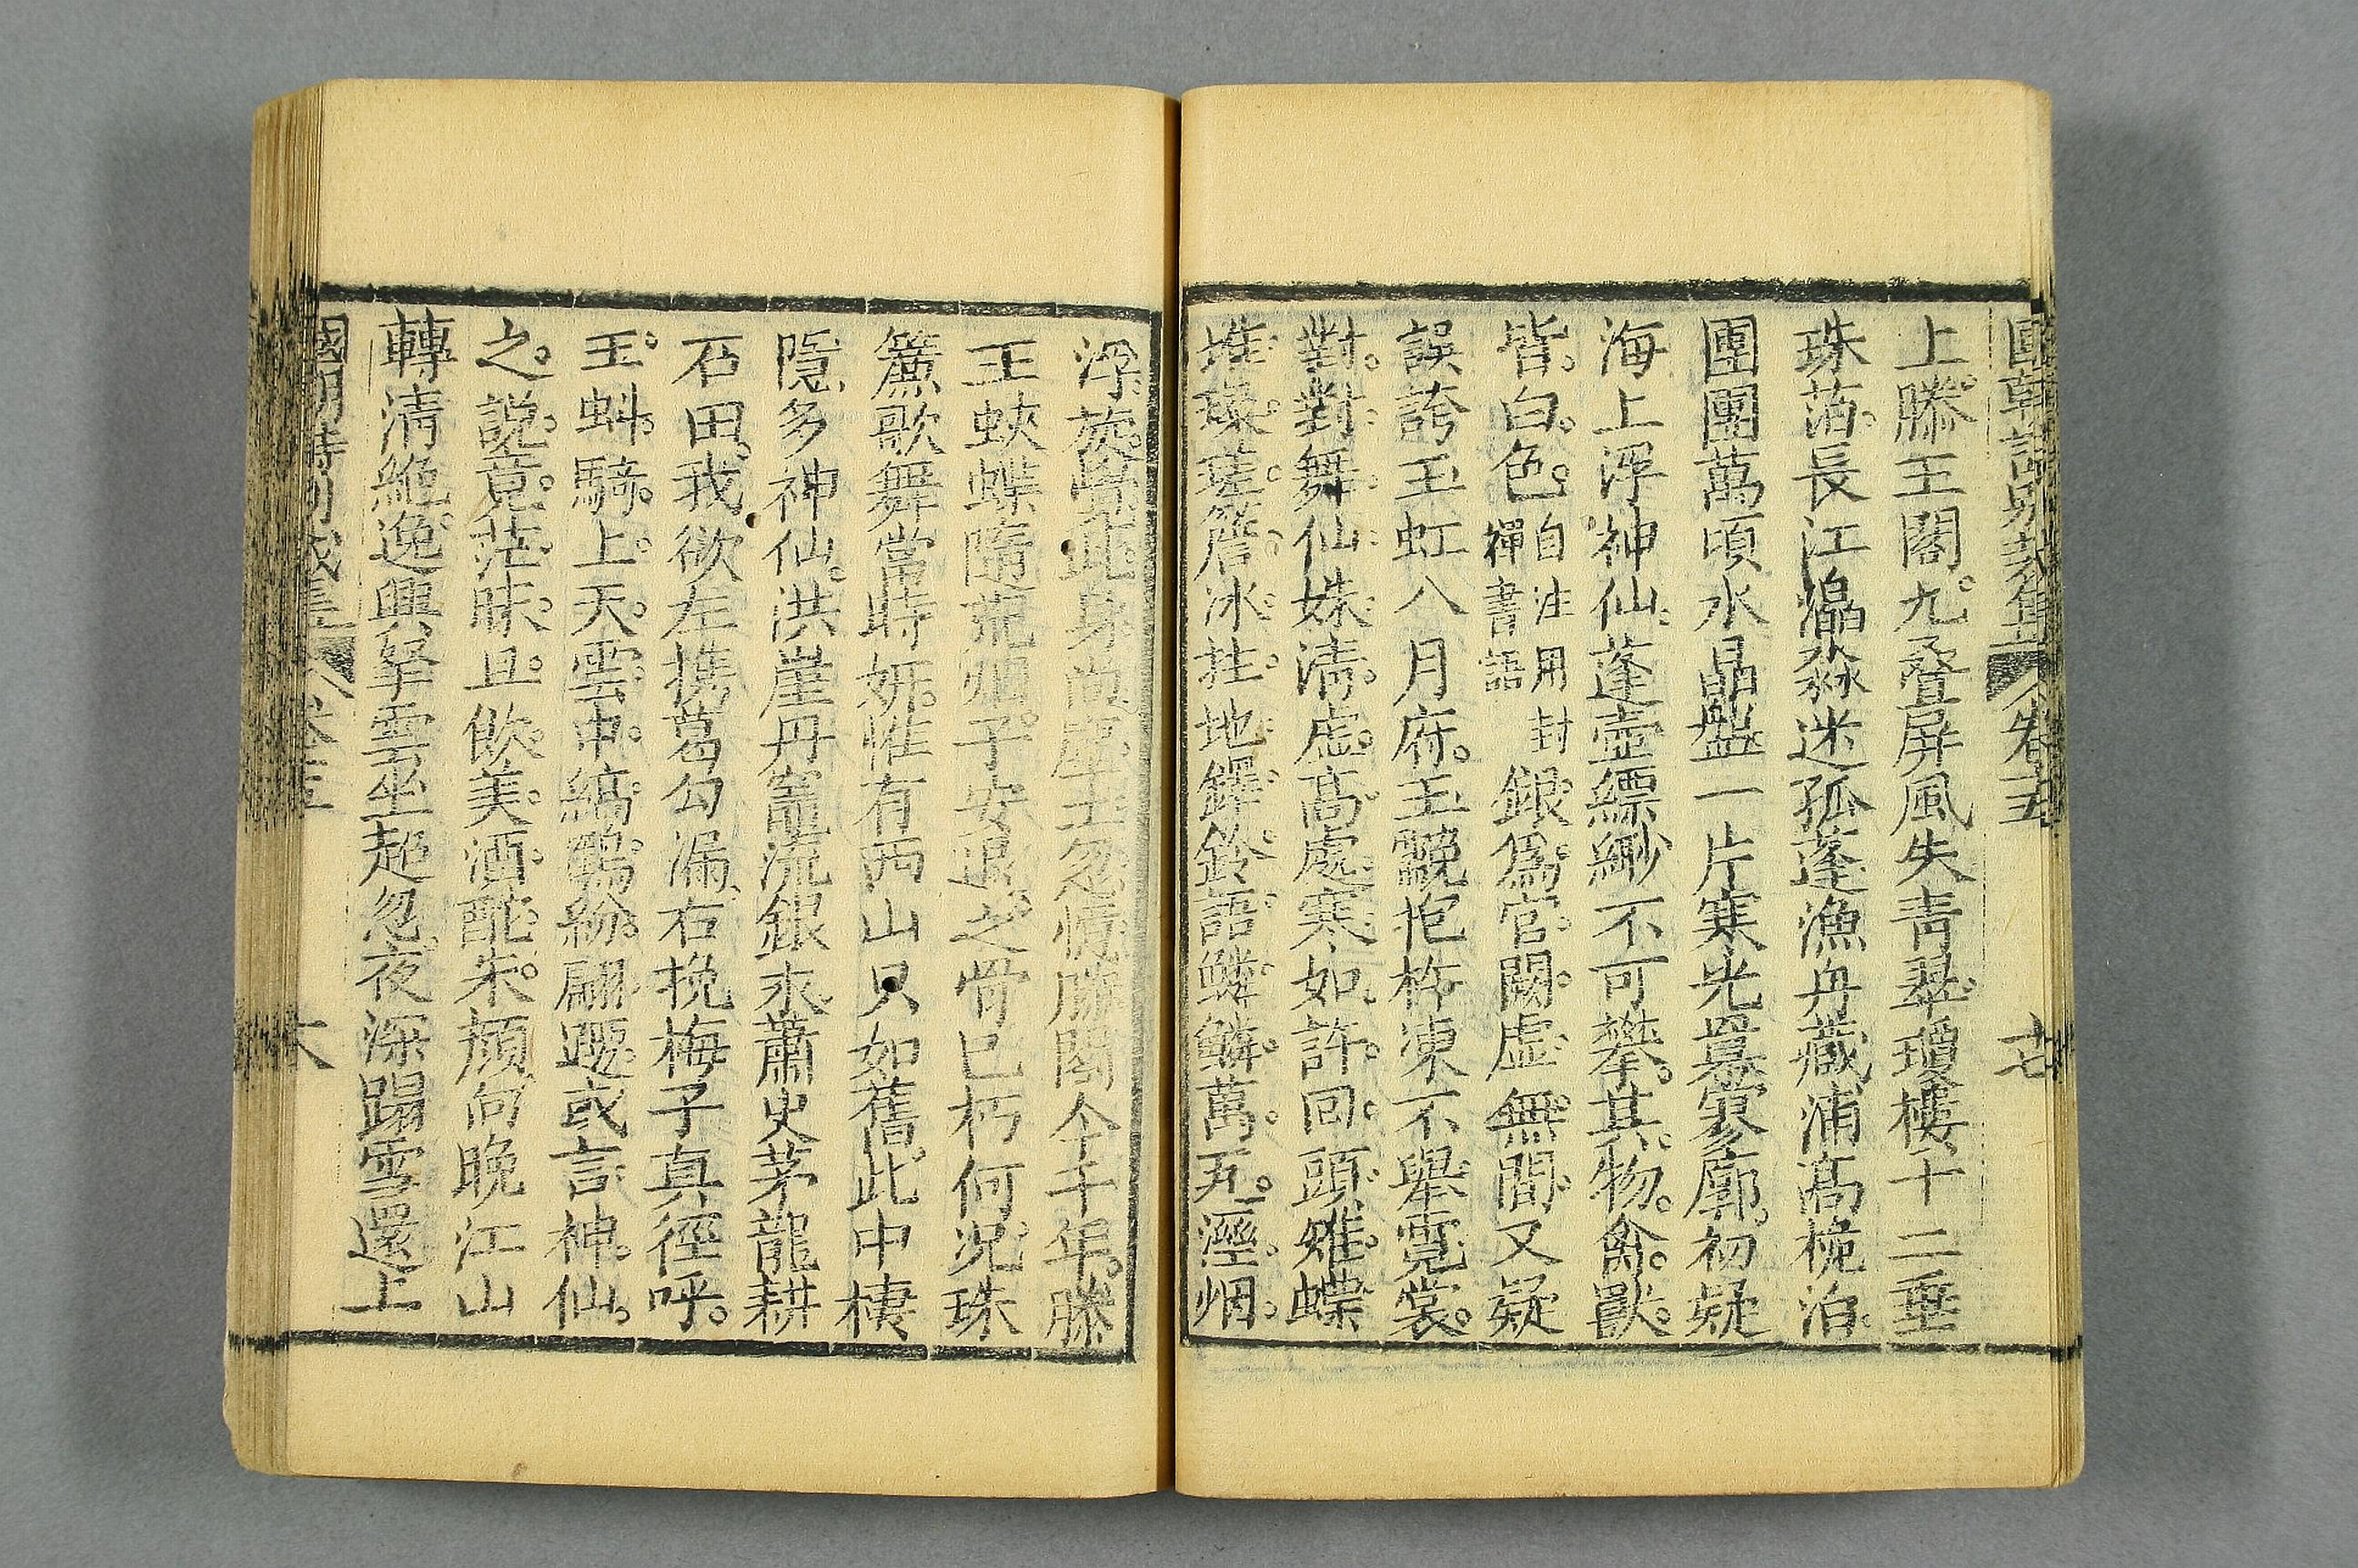 國朝詩別裁集 卷五 十七
上滕王閣九叠屏風失青翠瓊樓十二垂
珠箔長江瀛淼迷孤蓬漁舟藏浦高桅泊
團團萬頃水晶盤一片寒光罥寥廓初疑
海上浮神仙蓬壺縹緲不可攀其物禽獸
皆白色自注用封禪書語銀爲宫闕虛無間又疑
誤誇玉虹八月府玉龍抱杵凍不舉霓裳
對對舞仙姝清虛高處寒如許回頭雉蝶
堆瑤瑳簷冰挂地鐸鈴語鱗鱗萬瓦溼烟
浮旋覺此身尚塵土忽憶滕閣今千年滕
王蛺蝶隨荒烟子安跟之骨已朽何况珠
簾歌舞當時妍惟有西山只如舊此中棲
隱多神仙洪崖丹竈流銀汞蕭史茅龍耕
石田我欲左携葛勾漏右挽梅子真徑呼
玉虯騎上天雲中縞鶴紛翩躚或言神仙
之說竟茫昧且飲美酒酡朱顏向晚江山
轉清絶逸興拏雲坐超忽夜深蹋雪還上
國朝詩別裁集 卷五 大